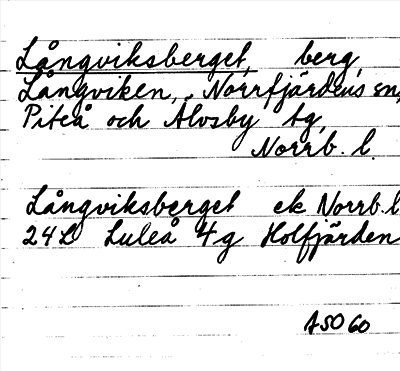 Långviksberget, berg,
Långviken, Norrfjärdens sn,
Piteå och Älvsby tg,
Norrb. l.
Långviksberget ek Norrb. l
24L Luleå 4g Holfjärden
ASO 60